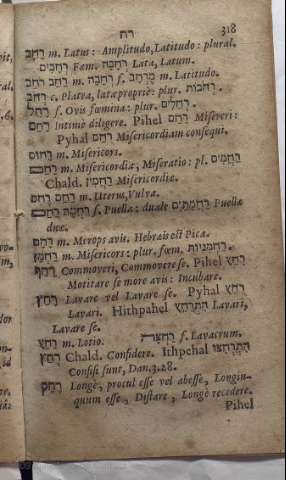 רח 318
רֹחַב m. Latus: Amplitudo, Latitudo: plural.
רְחָבִים. Fœm. רְחָבָה Lata, Latum.
רַחַב רֹחַב m. רָחְבָּה f. מֶרְחָב m. Latitudo.
רְחֹב c. Platea, lata propriè: plur. רְחֹבוֹת.
רָחֵל f. Ovis fœmina: plur. רְחֵלִים.
רָחַם Intimè diligere. Pihel רִחַם Misereri:
Pyhal רֻחַם Misericordiam consequi.
רַחוּם m. Misericors.
m. Misericordia, Miseratio: pl. רַחֲמִים
Chald. רַחֲמִין Misericordiæ.
רֶחֶם רַחַם m. Uterus, Vulva.
f. Puella: duale רַחֲמָתַיִם Puellæ
duæ.
רָחָם m. Merops avis. Hebræis est Pica.
m. Misericors: plur. fœm. רַחֲמָנִיּוֹת.
רָחַף Commoveri, Commovere se. Pihel
Motitare se more avis: Incubare.
רָחַץ Lavare vel Lavare se. Pyhal רֻחַץ
Lavari. Hithpahel הִתְרַחֵץ Lavari,
Lavare se.
רַחַץ m. Lotio. רַחְצָה f. Lavacrum.
רְחַץ Chald. Confidere. Ithpehal
Confisi sunt, Dan. 3. 28.
רָחַק Longè, procul esse vel abesse, Longin-
quum esse, Distare, Longè recedere.
Pihel